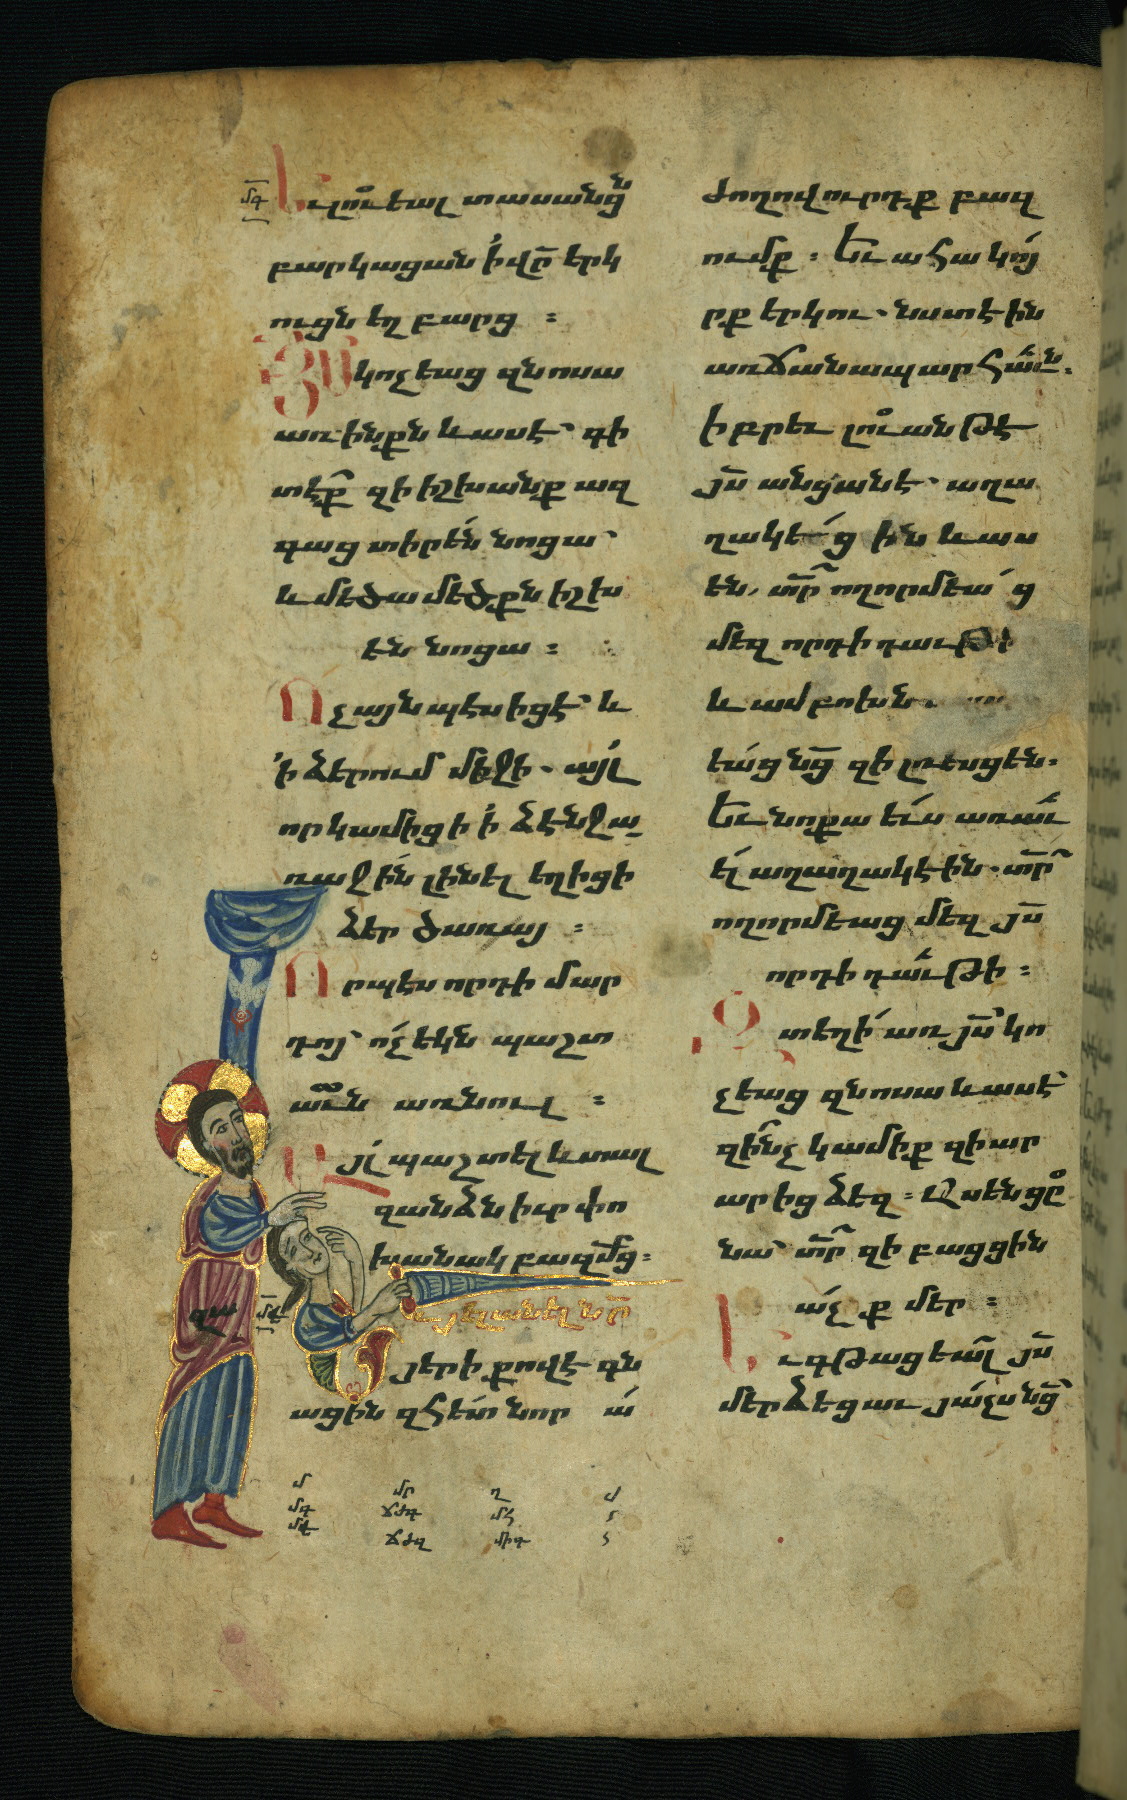 մգ
Եւ լո՟ւեալ տասանցն
բարկացան ի վր՟ երկ
ուցն եղբարց ։
Յս կոչեաց զնոսա
առ ինքն և ասէ՝ գի
տէք՟ զի իշխանք ազ
գաց տիրեն նոցա՝
և մեծամեծքն իշխ
են նոցա ։
Ոչ այնպէս իցէ՝ և
ի ձերում միջի. այլ
որ կամիցի ի ձէնջ ա
ռաջին լինել եղիցի
ձեր ծառայ ։
Որպէս որդի մար
դոյ՝ ոչ եկն պաշտ
աւ՟ն առնուլ ։
Այլ պաշտել և տալ
զանձն իւր փո
խանակ բազմ՟ց ։
Եւ յելանել նց՟
յերիքովէ գն
ացին զհետ նոր ա՛
մ մը ղ մ
մգ ճժգ մհ
մե ճժզ միգ
ժողովուրդք բազ
ումք ։ Եւ ահա կոյ
րք երկու. նստէին
առ ճանապարհան.
իբրեւ լո՟ւան թէ
յս՟ անցանէ՝ աղա
ղակեցին և աս
են, տր՟ ողորմեա՛ց
մեզ որդի դաւթի
և ամբոխն
եաց նց՟ զի լռեսցեն։
Եւ նոքա եւս առաւ
ել աղաղակէին. տր՟
ողորմեաց մեզ յս՟
որդի դաւթի ։
Զտեղի առ յս՟ կո
չեաց զնոսա և ասէ՝
զինչ կամիք զի ար
արից ձեզ ։ Ասեն ցը
նա՝ տր՟ զի բացցին
աչք մեր ։
Եւ գթացեալ՟ յս՟
մերձեցաւ յաչս նց՟